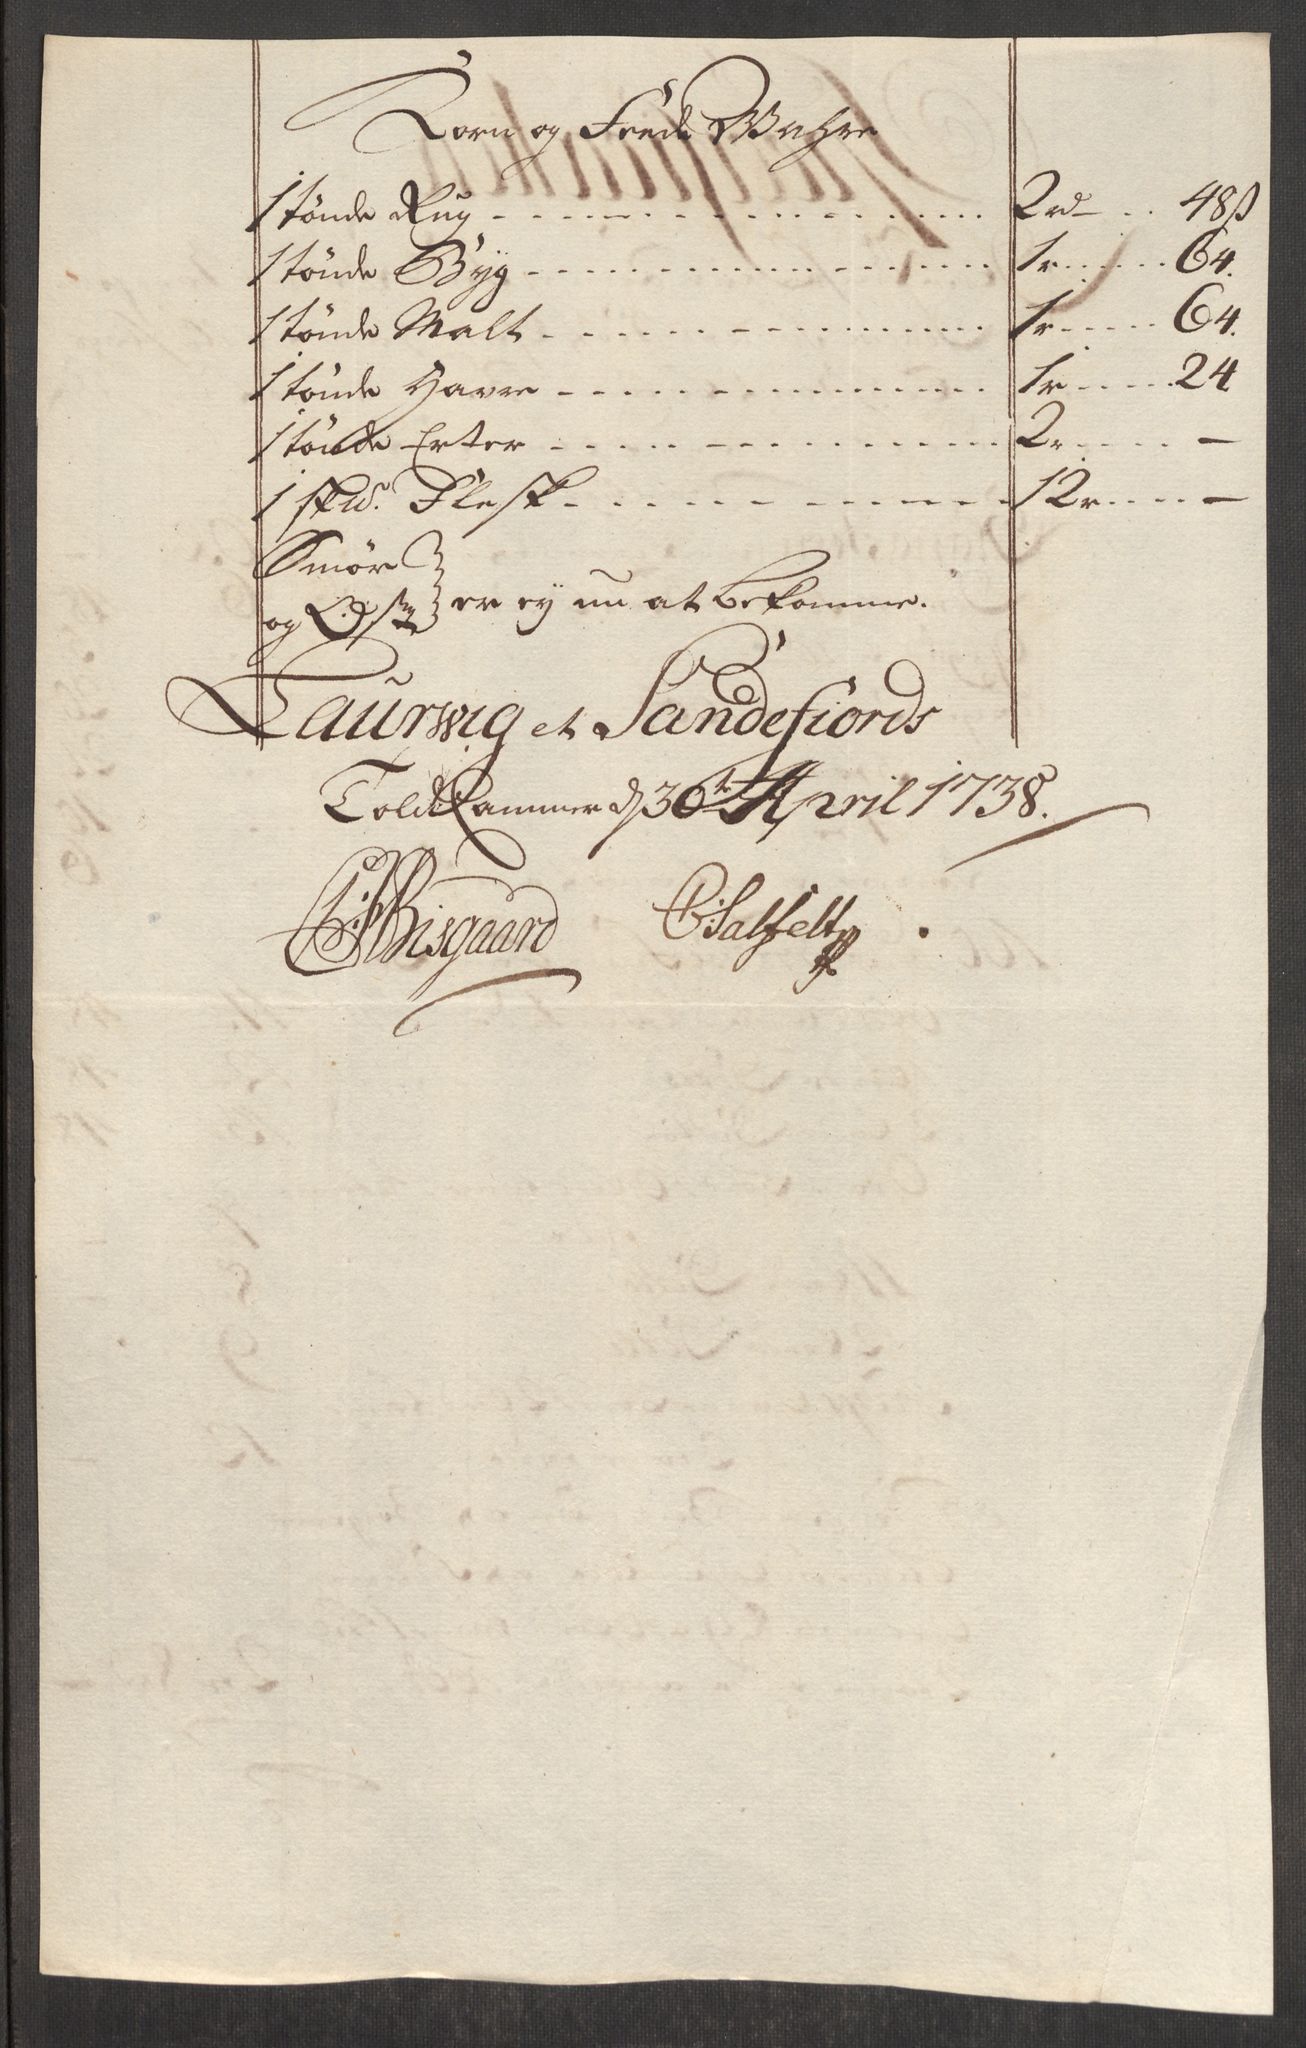 Korn og Fede Wahre
1 tönde Rug - - - - - - 2 rd - - 48 ß
1 tönde Byg - - - - - - 1 r - - - 64.
1 tönde Malt - - - - - - 1 r - - - 64.
1 tönde Havre - - - - - - 1 r - - - 24
1 tönde Erter - - - - - - 2 r - - - —
1 sk℔. Flesk - - - - - - 12 r - - - —
Smør
og Ost er ey nu at bekomme.
Laurwig et Sandefiords
Told Cammer d 30t April 1738.
Bisgaard CSalfelt